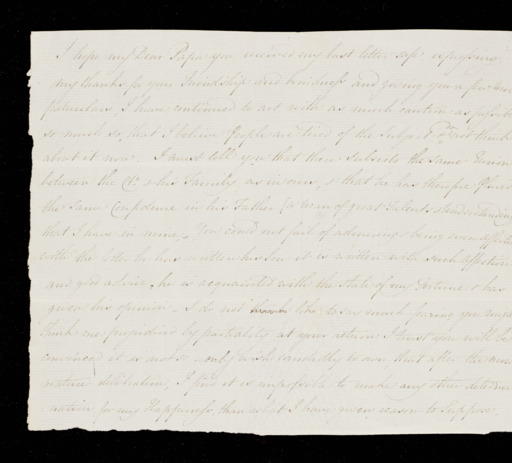 I hope my Dear Papa you received my last letter safe expressing
my thanks for your Friendship and kindness and giving you a few more
particulars, I have continued to act with as much caution as possible
so much so, that I believe People are tired of the Subject & do not think
about it now. I must tell you that there subsists the same Union
between the Ct. & his Family as in ours, & that he has therefore placed
the same Confidence in his Father (a man of great Talents & understanding)
that I have in mine, You could not fail of admiring & being even affected
with the letter he has written his son it is written with such affection
and good advice, he is acquainted with the state of my Fortune & has
given his opinion. I do not like to say much fearing you might
think me prejudiced by partiality at your return I trust you will be
convinced it is not so & only wish candidly to own that after the most
mature deliberation, I find it is impossible to make any other determi
nation for my Happiness than what I have given reason to Suppose